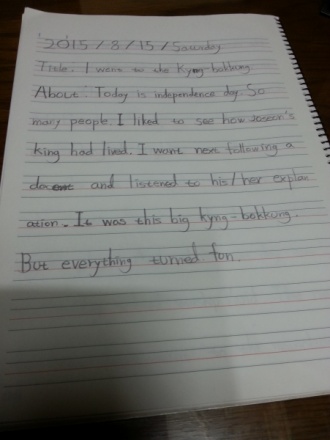 2015/8/15/Saturday
Title. I went to the Kyng bokkung.
About: Today is independence day. So
many people. I liked to see how Joseon's
king had lived. I want next following a
docent and listened to his/her explan
ation. It was this big kyng-bokkung.
But everything turned fun.